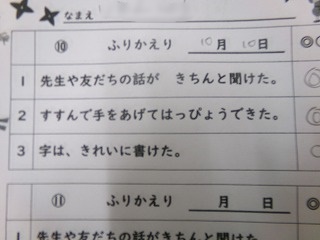 なまえ
⑩ ふりかえり 10月 10日 ◎○
1 先生や友だちの話が きちんと聞けた。 ◎
2 すすんで手をあげてはっぴょうできた。 ◎
3 字は、きれいに書けた。 ○
⑪ ふりかえり 月 日 ◎○
1 先生や友だちの話がきちんと聞けた。